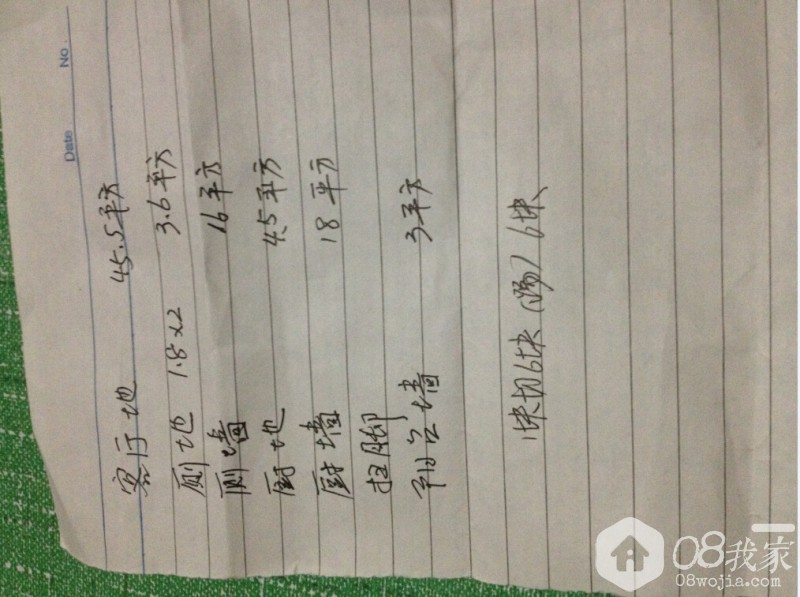 Date No.
客厅地 45.5平方
厕地 1.8×2 3.6平方
厕墙 16平方
厨地 4.5平方
厨墙 18平方
拉脚
阳台墙 3平方
1块切6块 6块
08我家
08wojia.com